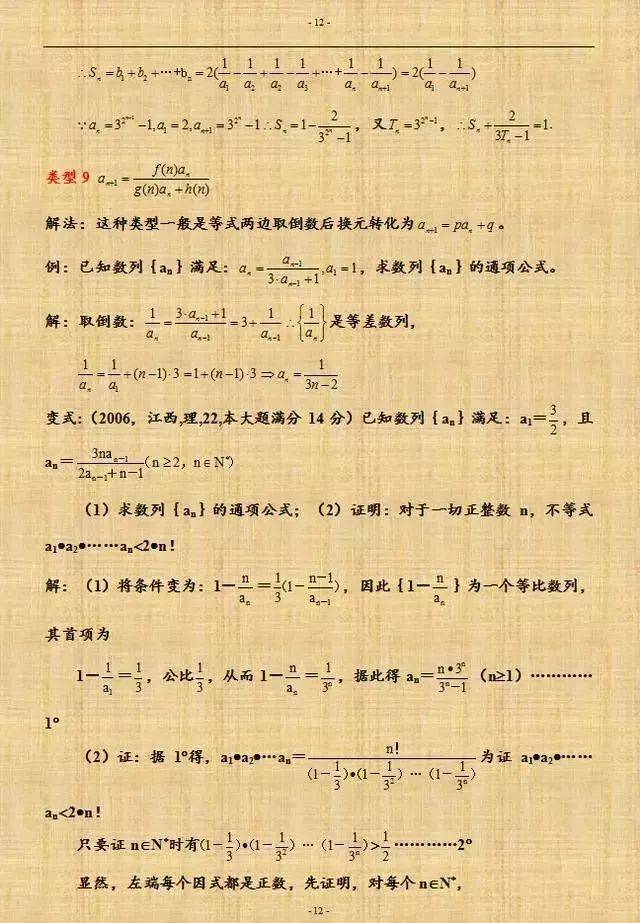 - 12 -
∴S_n=b_1+b_2+···+b_n=2(1/a_1-1/a_2+1/a_2-1/a_3+···+1/a_n-1/a_{n+1})=2(1/a_1-1/a_{n+1})
∵a_n=3^{2^{n-1}}-1,a_1=2,a_{n+1}=3^{2^n}-1∴S_n=1-2/(3^{2^n}-1)，又T_n=3^{2^n-1}，∴S_n+2/(3T_n-1)=1.
类型9 a_{n+1}=f(n)a_n/(g(n)a_n+h(n))
解法：这种类型一般是等式两边取倒数后换元转化为a_{n+1}=pa_n+q。
例：已知数列｛a_n｝满足：a_n=a_{n-1}/(3·a_{n-1}+1),a_1=1，求数列｛a_n｝的通项公式。
解：取倒数：1/a_n=(3·a_{n-1}+1)/a_{n-1}=3+1/a_{n-1}∴{1/a_n}是等差数列，
1/a_n=1/a_1+(n-1)·3=1+(n-1)·3⇒a_n=1/(3n-2)
变式:（2006，江西,理,22,本大题满分 14 分）已知数列｛a_n｝满足：a_1＝3/2，且
a_n＝3na_{n-1}/(2a_{n-1}+n-1)(n≥2，n∈N*)
（1）求数列｛a_n｝的通项公式；（2）证明：对于一切正整数 n，不等式
a_1•a_2•……a_n<2•n！
解：（1）将条件变为：1－n/a_n＝1/3(1-(n-1)/a_{n-1})，因此｛1－n/a_n｝为一个等比数列，
其首项为
1－1/a_1＝1/3，公比1/3，从而 1－n/a_n＝1/3^n，据此得 a_n＝n•3^n/(3^n-1)（n≥1）…………
1°
（2）证：据 1°得，a_1•a_2•…a_n＝n!/((1-1/3)•(1-1/3^2)…(1-1/3^n))为证 a_1•a_2•……
a_n<2•n！
只要证 n∈N*时有(1-1/3)•(1-1/3^2)…(1-1/3^n)>1/2…………2°
显然，左端每个因式都是正数，先证明，对每个 n∈N*，
- 12 -